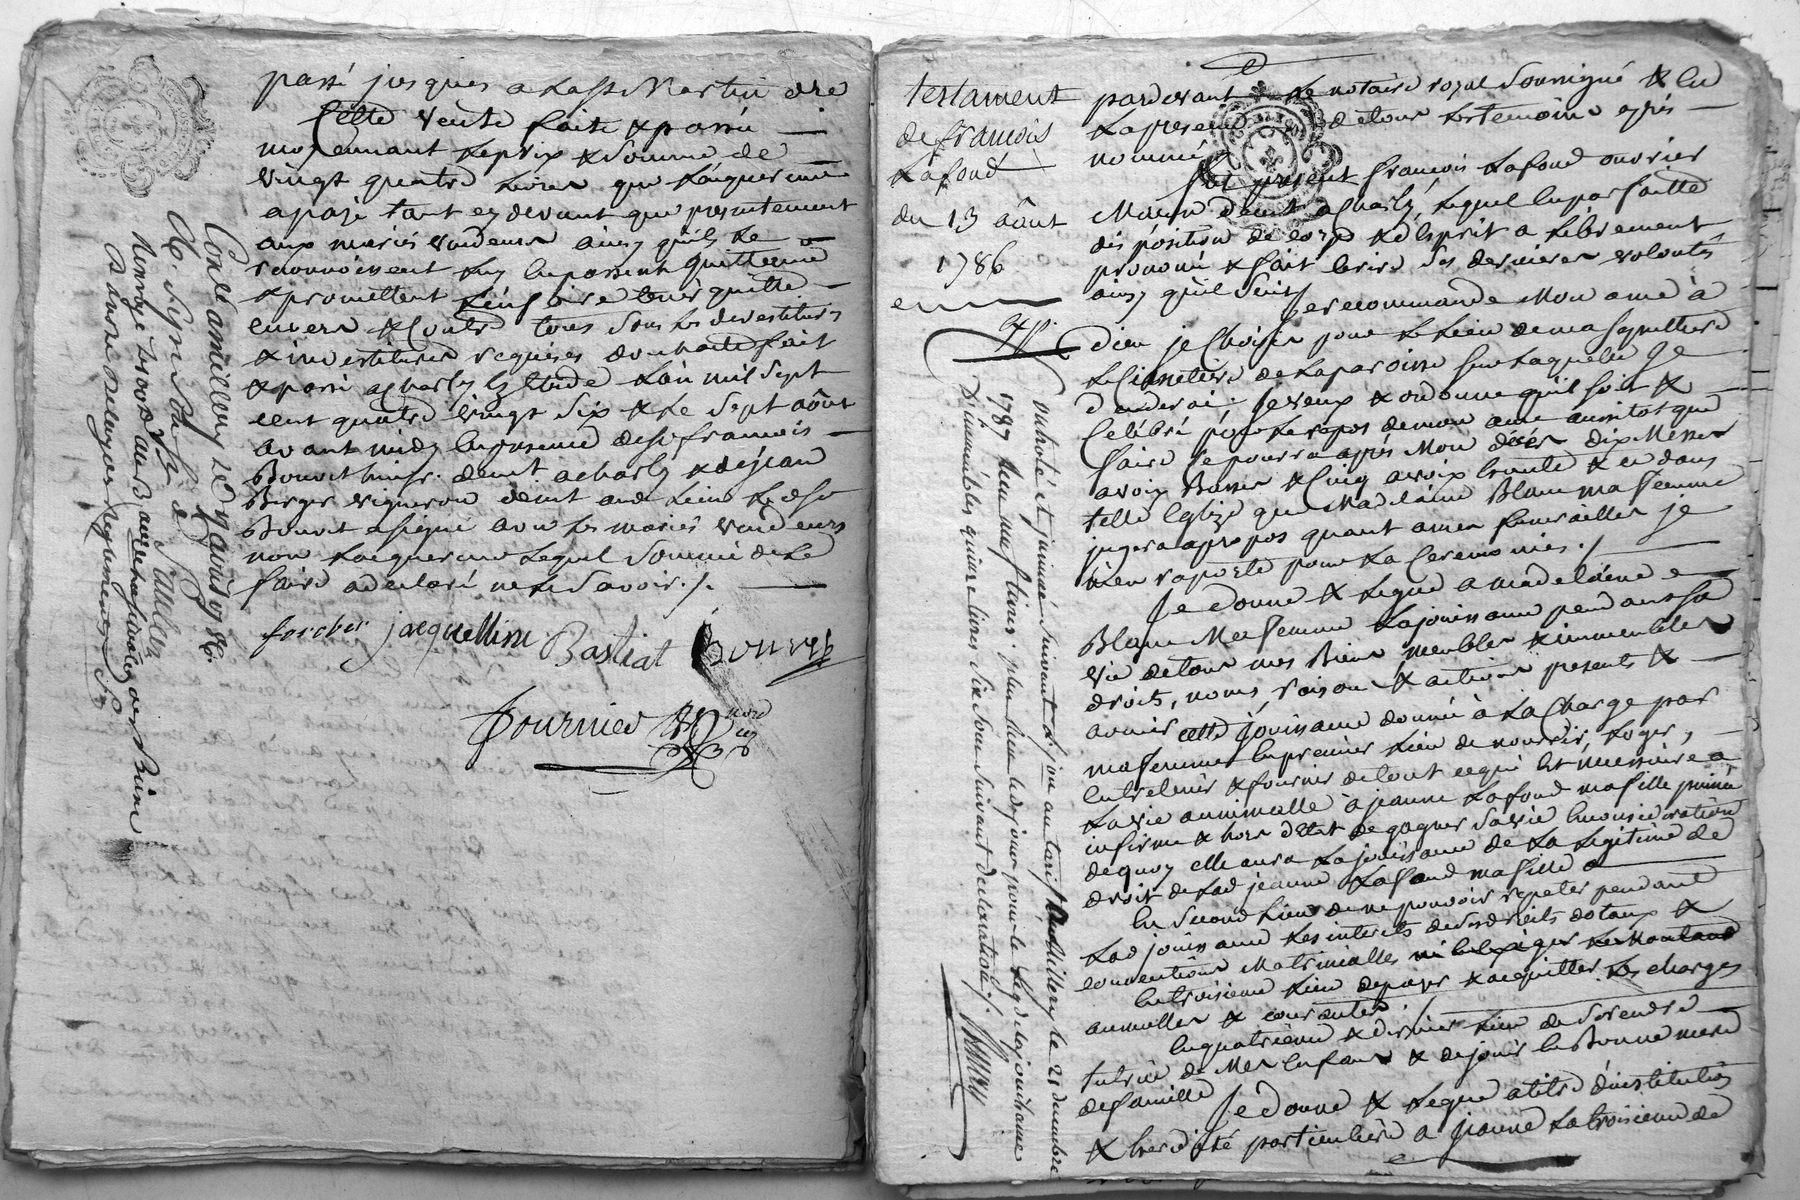 passé jusques a la St Martin dre
Cette vente faite & passée
moyennant le prix & somme de
vingt quatre livres que l'acquereur
a payé tant cy devant que presentement
aux mariés vendeurs ainsy qu'ils le
reconnoissent luy en passent quittance
& promettent l'en faire tenir quitte
envers & contre tous sous les devestitures
& investitures requises dont acte fait
& passé a Charly En Etude l'an mil sept
cent quatre vingt six & le sept août
avant midy en presence de sr francois
Bouvet huissr. demt. a charly & de jean
Berger vigneron demt. aud. lieu led. sr
Bouvet a signé avec les mariés vendeurs
non l'acquereur lequel sommé de le
faire a declaré ne le savoir ./.
forcher jacquelline Bastiat Bouvet
Fournier
Con.lé a millery le 9 aoust 1786.
testament
de françois
Lafond
du 13 août
1786
pardevant le notaire royal soussigné & en
la presence de tous les temoins après
nommés
fut present francois Lafond ouvrier
Maçon demt. a Charly, lequel en parfaitte
disposition de corps & d'esprit a librement
prononcé & fait ecrire ses dernieres volontés
ainsy qu'il suit Je recommande mon ame à
Dieu je choisis pour le lieu de ma sepulture
le cimetiere de la paroisse sur laquelle je
decederai, je veux & ordonne qu'il soit
celebré pour le repos de mon ame aussitot que
faire se pourra après mon décès dix Messes
a voix Basses & cinq a voix haute & ce dans
telle Eglize que Madelaine Blanc ma femme
jugera apropos quant a mes funerailles je
m'en raporte pour la ceremonies ./.
Je donne & legue a madelaine
Blanc Ma femme la jouissance pendant sa
vie de tous mes Biens meubles & immeubles
droits, noms, raisons & actions presents &
avenir cette jouissance donnée à la Charge par
ma femme en premier lieu de nourrir, loger,
entretenir & fournir de tout ce qui est necessaire a
la vie annimalle à jeanne Lafond ma fille
infirme & hors d'etat de gagner sa vie en consideration
de quoy elle aura la jouissance de la legitime de
droit de lad jeanne Lafond ma fille
En second lieu de ne pouvoir repeter pendant
lad jouissance les interets de ses droits dotaux &
conventions Matrimialles ni en exiger le Montant
En troisieme lieu de payer & acquitter les charges
annuelles & courantes
En quatrieme & dernier lieu de se rendre
tutrice de Mes enfans & de jouir en Bonne mere
de famille
Je donne & legue a titre d'institution
& heredité particuliere a jeanne Latroisieme de
Controlé et insinué suivant le tarif a Millery le 21 decembre
1787 Reçu neuf livres plus reçu led. jour pour le leg de la jouissance
D'immeubles quinze livres six sous suivant declaration ./.